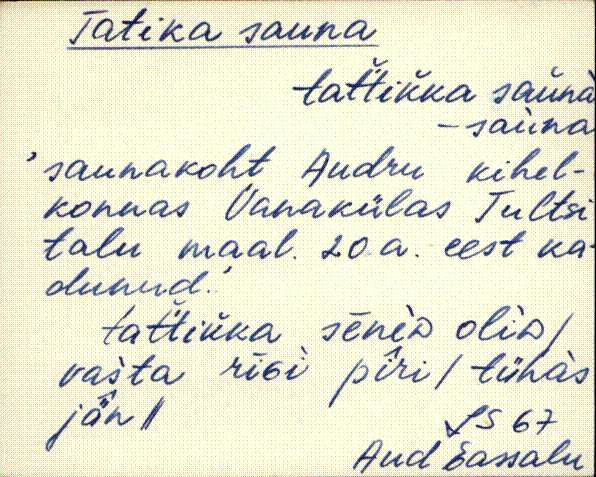 Tatika sauna
tat̆t̆ik̆ka sau̯nà
– sàuna
'saunakoht Audru kihel-
konnas Vanakülas Tultsi
talu maal. 20 a. eest ka-
dunud.'
tat̆t̆ik̆ka sēnìᴅ olìᴅ /
vas̀ta rīɢì pîri / tühàs
jä̂n //
LS 67
Aud Sassalu